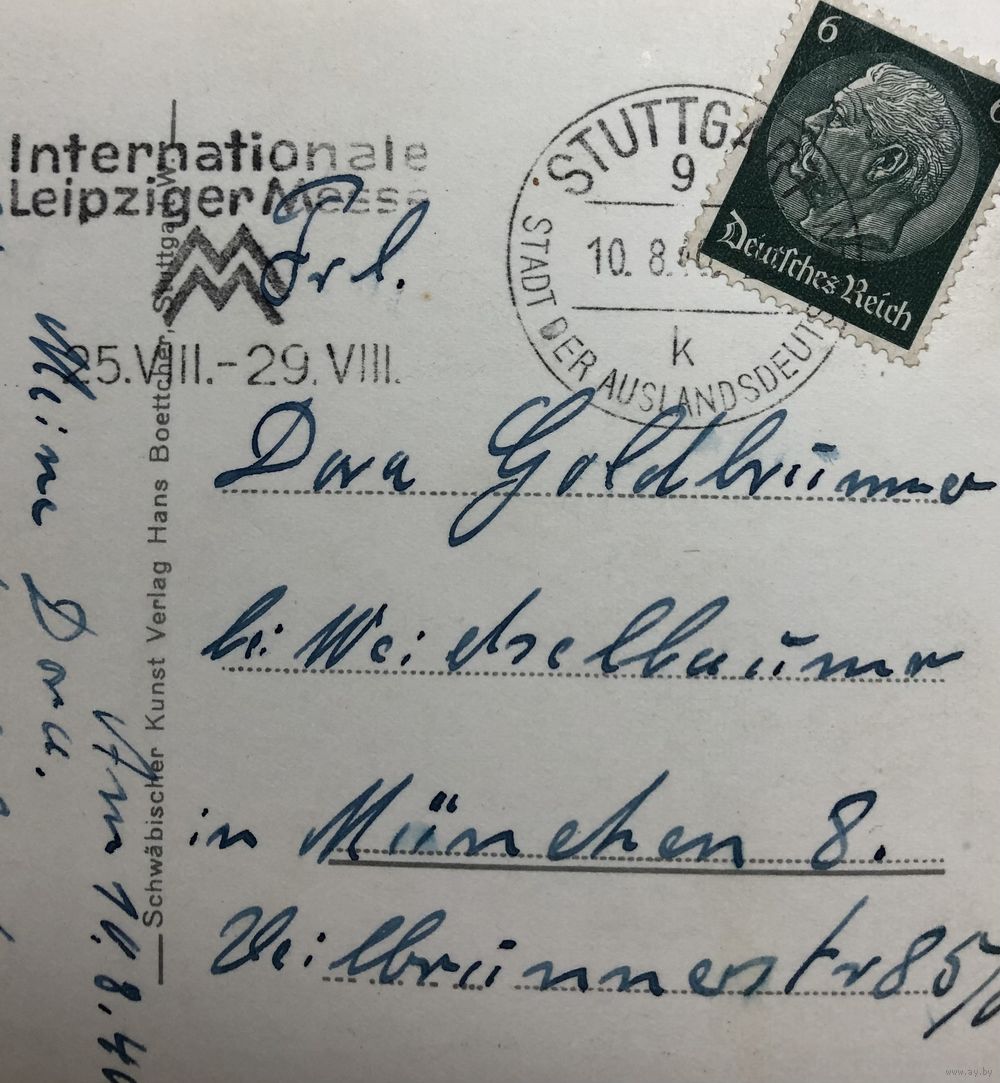 Internationale
Leipziger Messe
25.VIII.-29.VIII.
STUTTGART
9
10. 8. 40
k
STADT DER AUSLANDSDEUT
6
6
Deutsches Reich
Frl.
Dora Goldbrunner
bei Weichselbaumer
in München 8.
str 85/
Schwäbischer Kunst Verlag Hans Boettcher, Stuttgart-W.
Am 10.8.40
Meine Dora.
www.ay.by